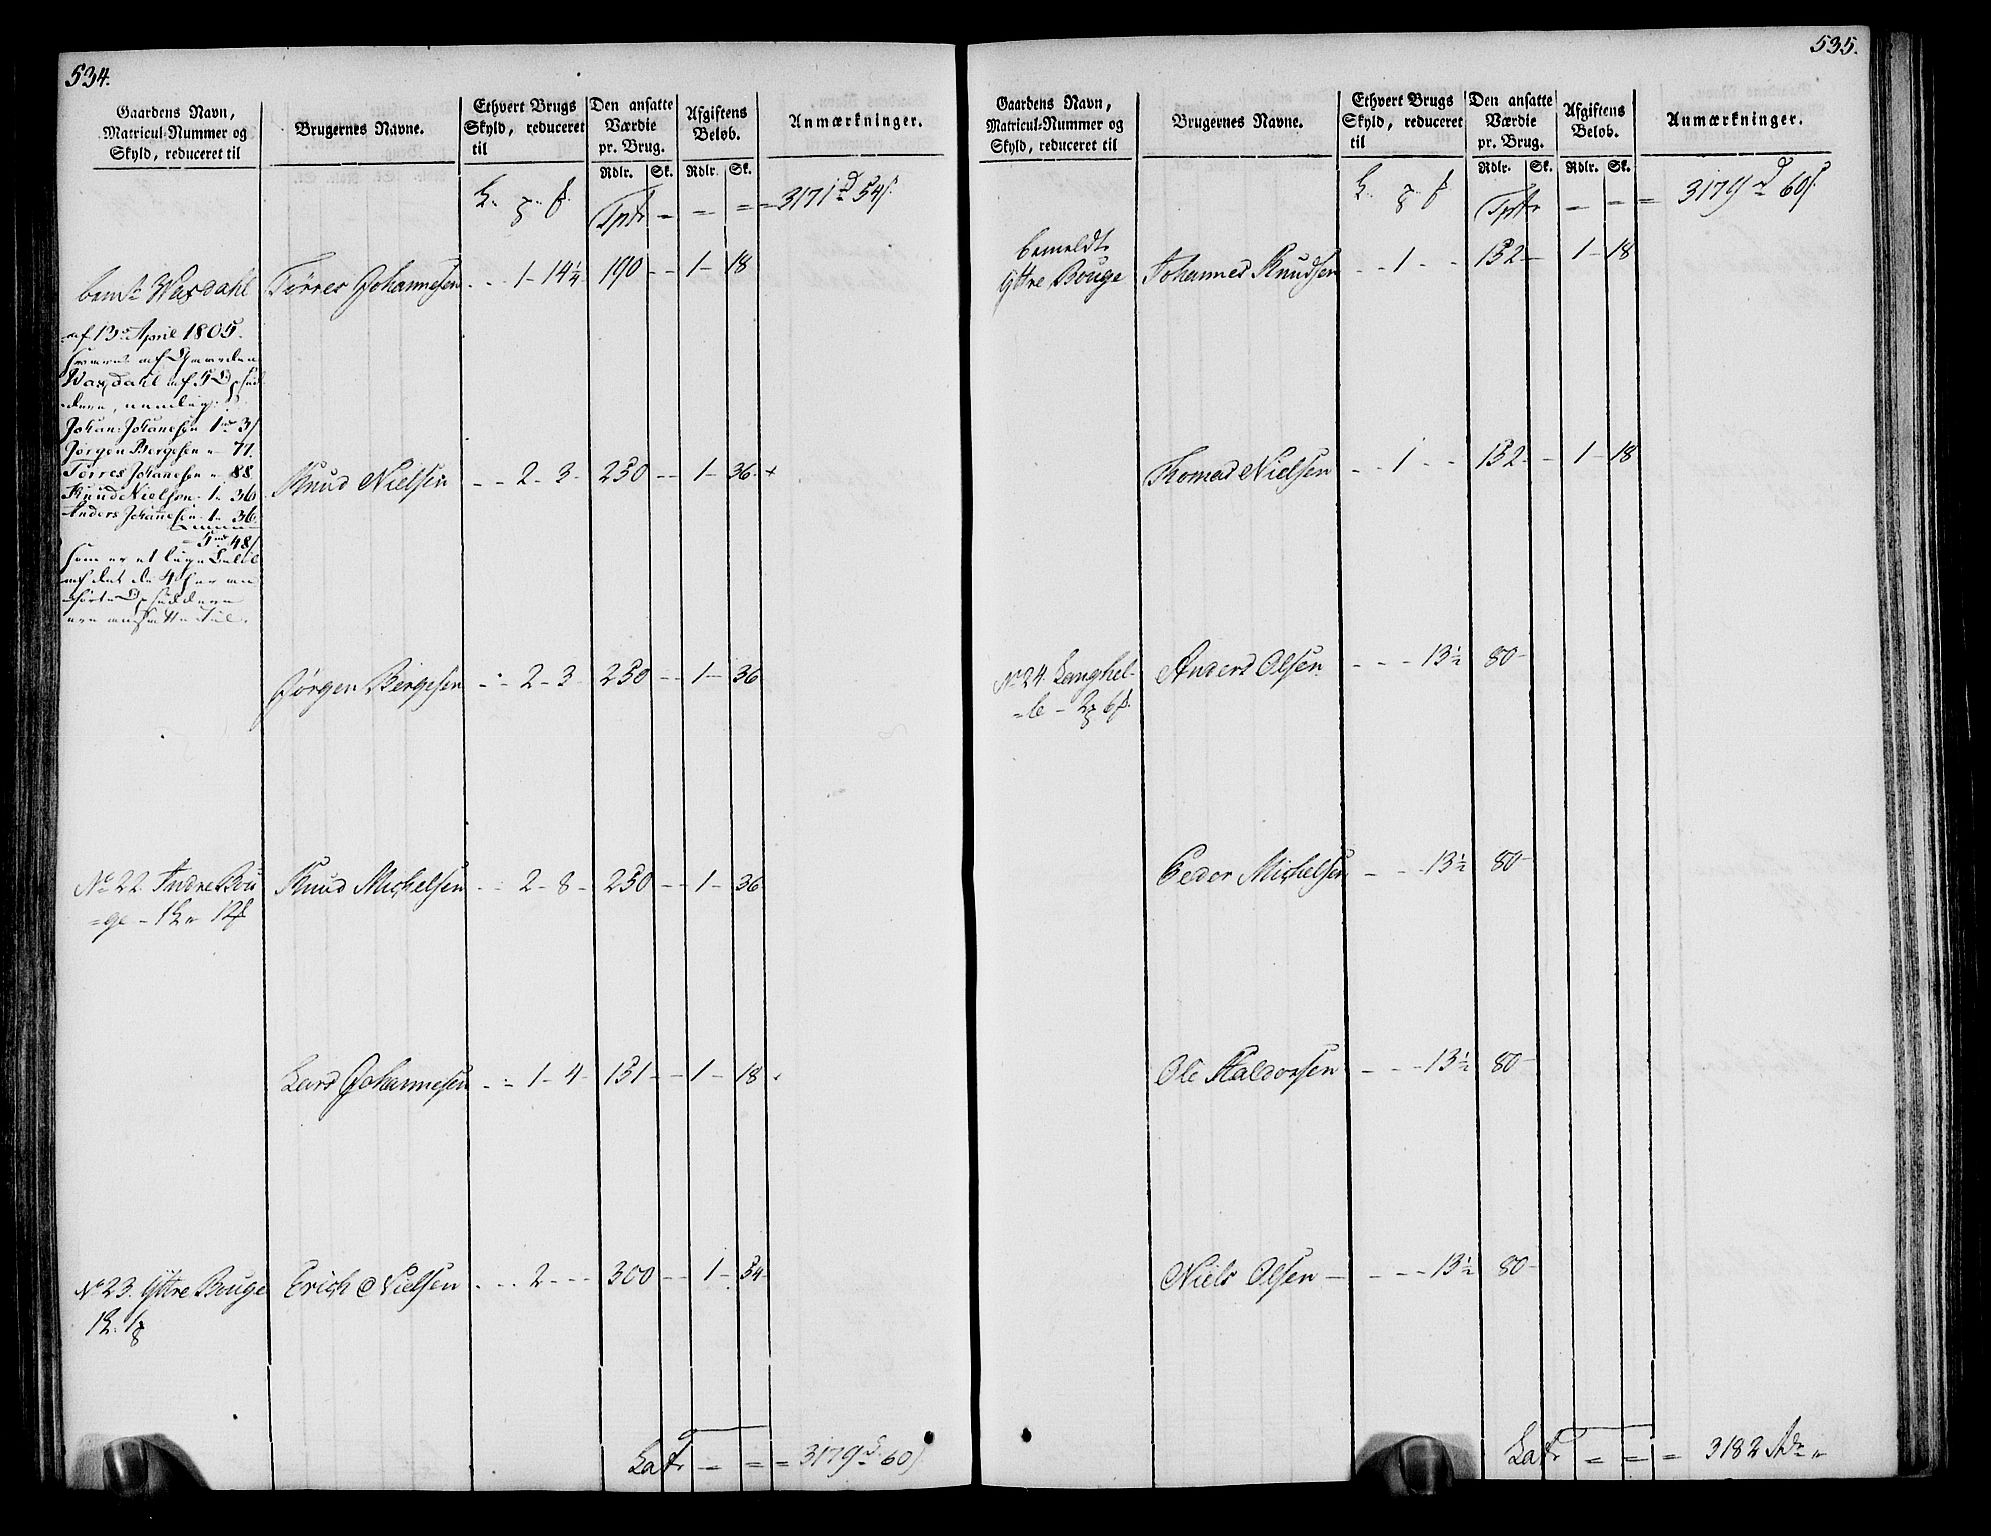 534.
Gaardens Navn,
Matricul-Nummer og
Skyld, reduceret til
Brugernes Navne.
Ethvert Brugs
Skyld, reduceret
til
Den ansatte
Værdie
pr. Brug.
Rdlr. Sk.
Afgiftens
Beløb.
Rdlr. Sk.
Anmærkninger.
Tptr - - = = 3171 d 54 s
bemt Waxdahl Tørres Johannesen - - 1 - 14¼ 190 - - 1 - 18
af 13 April 1805.
Waxdahl af 5 Opsid
dere, nemlig:
Johan: Johanesen 1 " 3 s
Jørgen Bergesen " - 77.
Tørres Johanesen " 88
Knud Nielsen - 1 " 36
Anders Johannesen - 1 " 36
5 " 48 s
som er et lige Beløb
af det de 4 her an
førte Opsiddere
ere ansatte til.
Knud Nielsen - - 2 - 3 - 250 - - 1 - 36 +
Jørgen Bergesen - - 2 - 3 250 - - 1 - 36
No 22. Indre Bou Knud Michelsen - - 2 - 8 - 250 - - 1 - 36
=ge - 1 L " 12 f
Lars Johannesen - - 1 - 4 - 131 - - 1 - 18
No 23. Yttre Bouge Erich Nielsen - - 2 - - - 300 - - 1 - 54
1 L. 1
Latr - = = 3179 d 60 s
535.
Gaardens Navn,
Matricul-Nummer og
Skyld, reduceret til
Brugernes Navne.
Ethvert Brugs
Skyld, reduceret
til
Den ansatte
Værdie
pr. Brug.
Rdlr. Sk.
Afgiftens
Beløb.
Rdlr. Sk.
Anmærkninger.
Tptr - - = 3179 d 60 s
bemeldte
Yttre Bouge Johannes Knudsen - - 1 - - 132 - 1 - 18
Thomas Nielsen - - 1 - - 132 - - 1 - 18
No 24. Langhel- Anders Olsen - - - 13½ 80 -
=le - 2 6 f.
Peder Michelsen - - - 13½ 80 -
Ole Haldorsen - - - 13½ 80 -
Niels Olsen - - - - 13½ 80 -
Latr = = = 3182 "